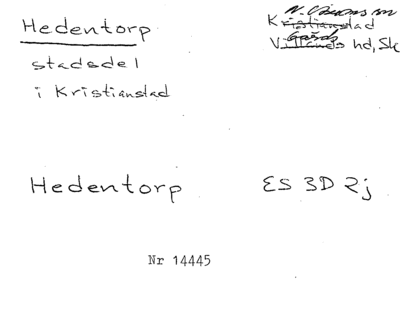 Hedentorp
stadsdel
i Kristianstad
Kristianstad
Gärds
Villands hd, Sk
Hedentorp
ES 3D 2j
Nr 14445